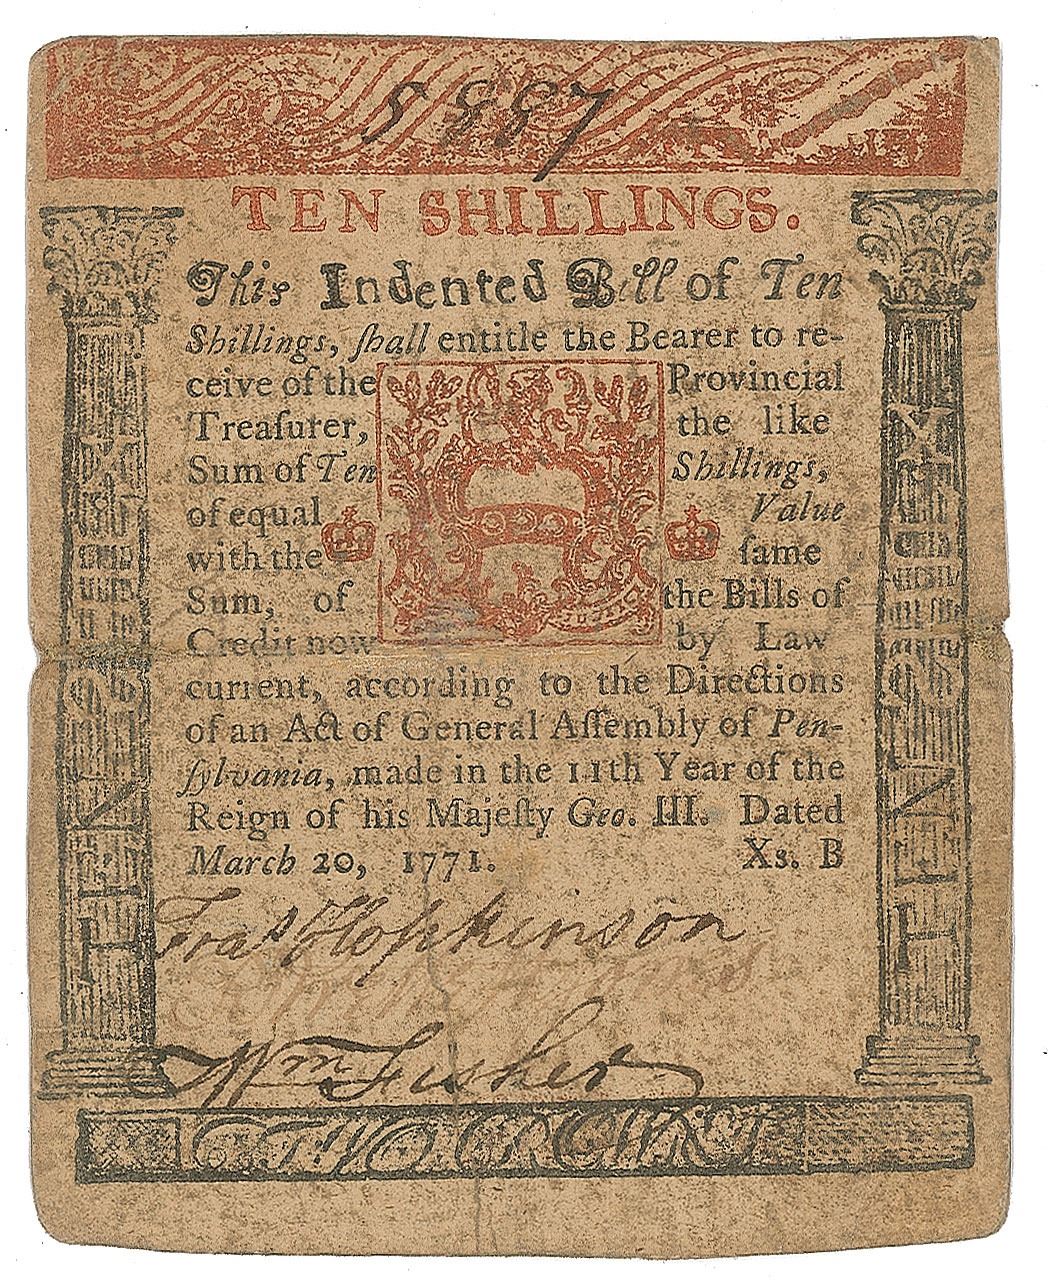 5887
TEN SHILLINGS.
This Indented Bill of Ten
Shillings, ſhall entitle the Bearer to re-
ceive of the Provincial
Treaſurer, the like
Sum of Ten Shillings,
of equal Value
with the ſame
Sum, of the Bills of
Credit now by Law
current, according to the Directions
of an Act of General Aſſembly of Pen-
ſylvania, made in the 11th Year of the
Reign of his Majeſty Geo. III. Dated
March 20, 1771. Xs. B
Fras Hopkinson
Wm Fisher
TWO CROWNS